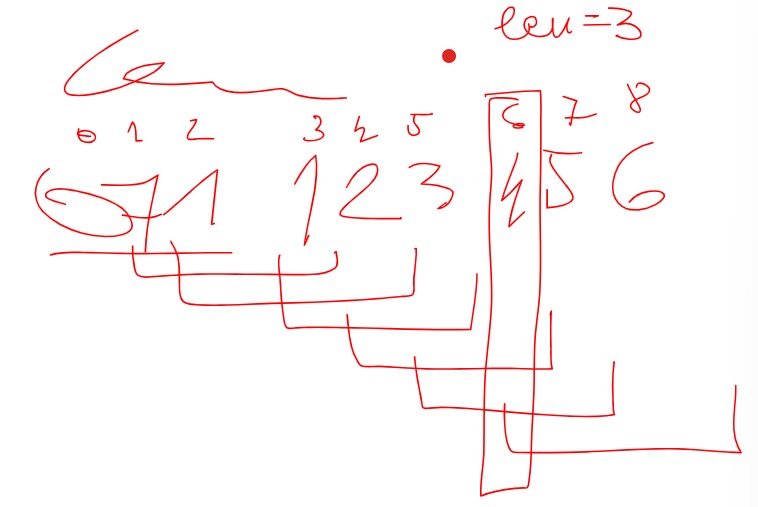 len = 3
0 1 2 3 4 5 6 7 8
0 7 1 1 2 3 4 5 6